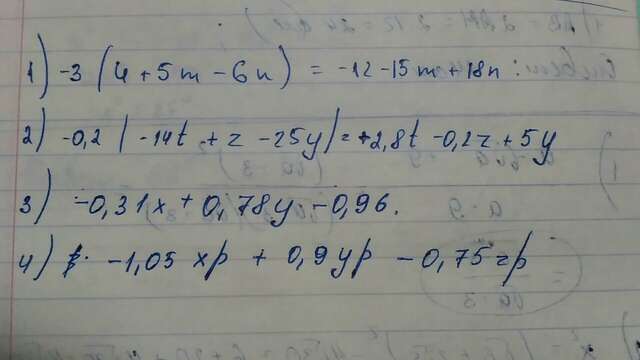 1) -3 (4 + 5m - 6n) = -12 - 15m + 18n;
2) -0,2 (-14t + z - 25y) = +2,8t - 0,2z + 5y
3) -0,31x + 0,78y - 0,96.
4) -1,05xp + 0,9yp - 0,75zp